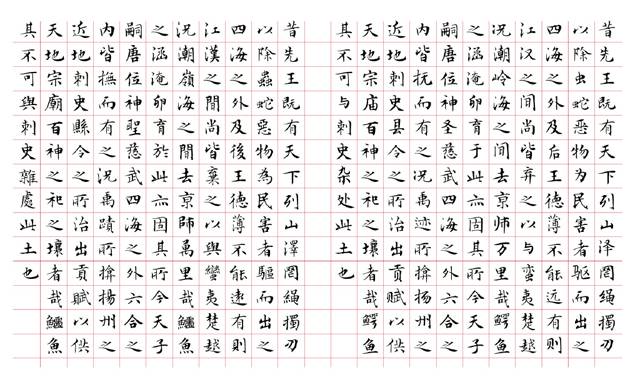 昔先王既有天下列山泽罔绳擉刃
以除虫蛇恶物为民害者驱而出之
四海之外及后王德薄不能远有则
江汉之间尚皆弃之以与蛮夷楚越
况潮岭海之间去京师万里哉鳄鱼
之涵淹卵育于此亦固其所今天子
嗣唐位神圣慈武四海之外六合之
内皆抚而有之况禹迹所揜扬州之
近地刺史县令之所治出贡赋以供
天地宗庙百神之祀之壤者哉鳄鱼
其不可与刺史杂处此土也
昔先王既有天下列山澤罔繩擉刃
以除蟲蛇惡物為民害者驅而出之
四海之外及後王德薄不能遠有則
江漢之間尚皆棄之以與蠻夷楚越
況潮嶺海之間去京師萬里哉鱷魚
之涵淹卵育於此亦固其所今天子
嗣唐位神聖慈武四海之外六合之
內皆撫而有之況禹蹟所揜揚州之
近地刺史縣令之所治出貢賦以供
天地宗廟百神之祀之壤者哉鱷魚
其不可與刺史雜處此土也